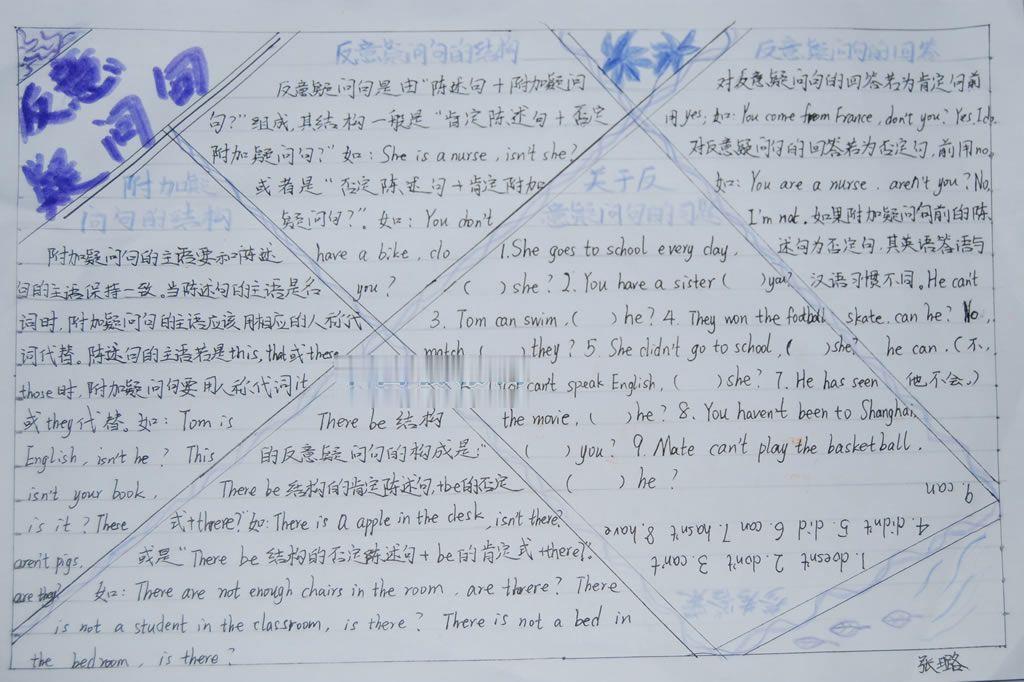 反意
疑问句
反意疑问句的结构
反意疑问句是由“陈述句＋附加疑问
句?”组成,其结构一般是“肯定陈述句＋否定
附加疑问句?”如: She is a nurse, isn't she?
或者是“否定陈述句＋肯定附加
疑问句?”。如: You don't
have a bike, do
you?
附加疑
问句的结构
附加疑问句的主语要和陈述
句的主语保持一致。当陈述句的主语是名
词时,附加疑问句的主语应该用相应的人称代
词代替。陈述句的主语若是this, that或these
those时,附加疑问句要用人称代词it
或they代替。如: Tom is
English, isn't he? This
isn't your book,
is it? These
aren't pigs,
are they?
There be 结构
的反意疑问句的构成是:“
There be 结构的肯定陈述句,+be的否定
式+there?”如: There is a apple in the desk, isn't there?
或是“There be 结构的否定陈述句+be的肯定式+there?”.
如: There are not enough chairs in the room, are threre? There
is not a student in the classroom, is there? There is not a bed in
the bedroom, is there?
关于反
意疑问句的习题
1.She goes to school every day,
( ) she? 2. You have a sister ( ) you?
3. Tom can swim, ( ) he? 4. They won the football
match ( ) they? 5 She didn't go to school, ( ) she?
can't speak English, ( ) she? 7. He has seen
the movie, ( ) he? 8. You haven't been to Shanghai,
( ) you? 9. Mate can't play the basketball,
( ) he?
反意疑问句的回答
对反意疑问句的回答若为肯定句前
用yes; 如: You come from France, don't you? Yes, I do.
对反意疑问句的回答若为否定句,前用no,
如: You are a nurse, aren't you? No,
I'm not. 如果附加疑问句前的陈
述句为否定句,其英语答语与
汉语习惯不同。He can't
skate, can he? No,
he can. (不,
他不会。)
参考答案
1. doesn't 2. don't 3. can't
4. didn't 5. did 6. can 7. hasn't 8. have
9. can
张璐